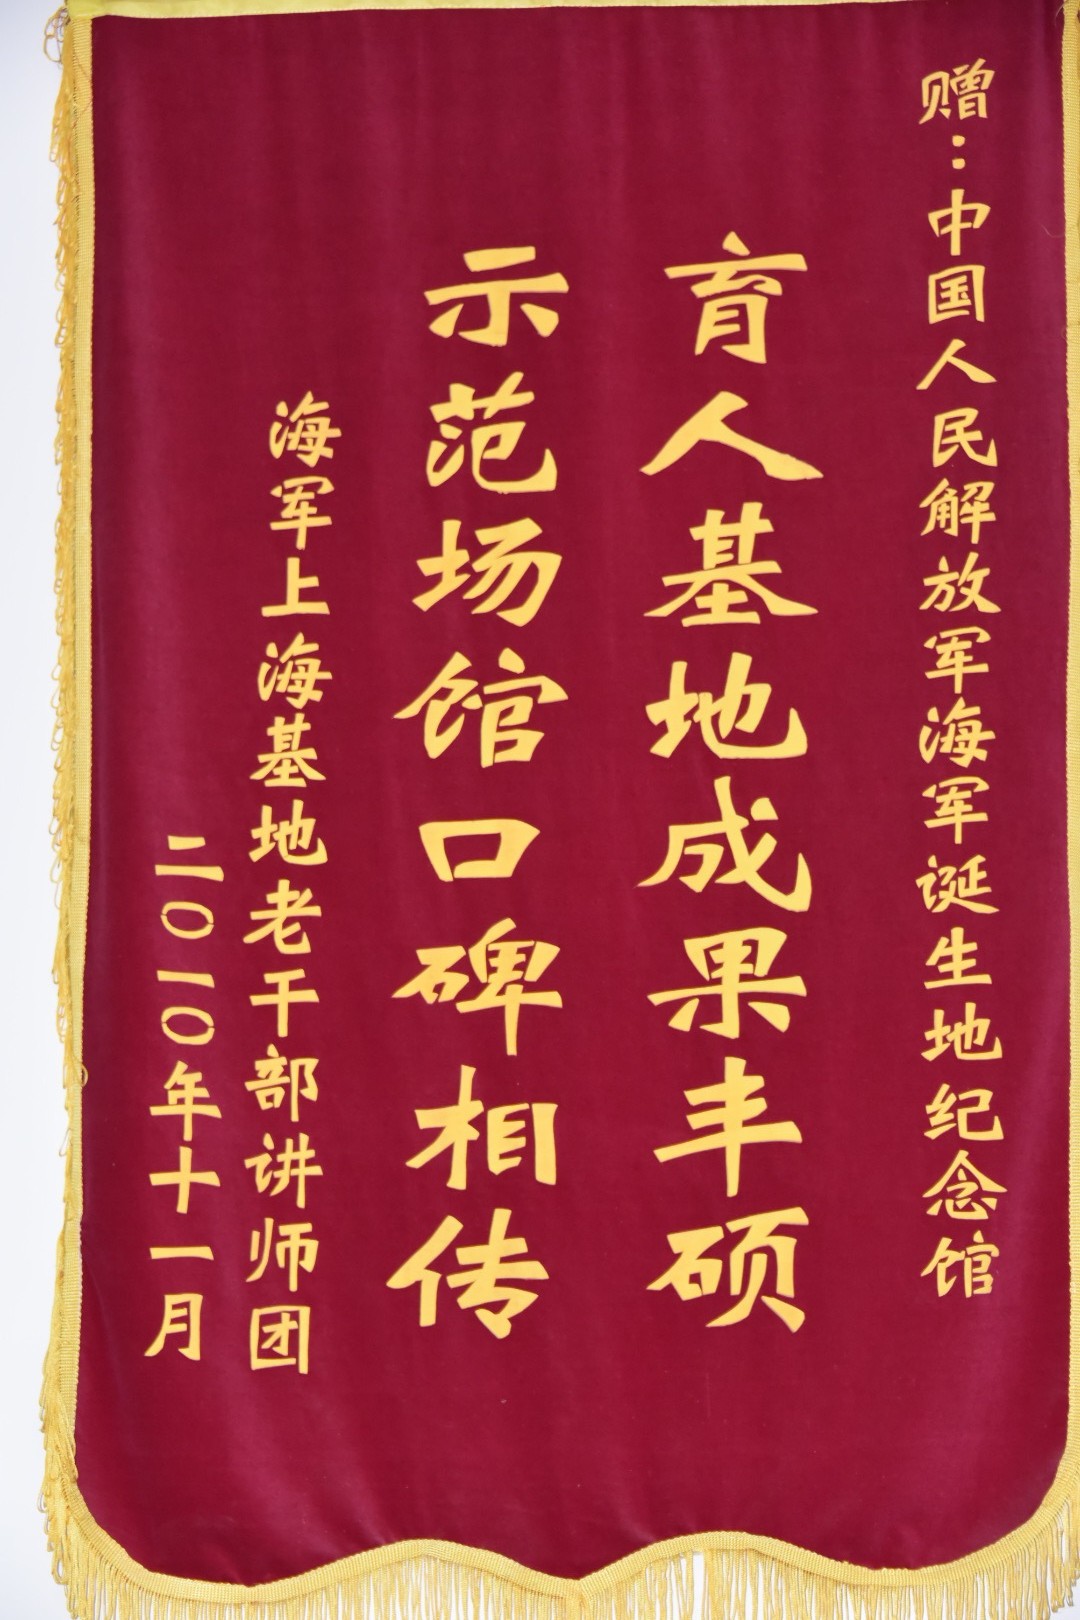 赠：中国人民解放军海军诞生地纪念馆
育人基地成果丰硕
示范场馆口碑相传
海军上海基地老干部讲师团
二〇一〇年十一月